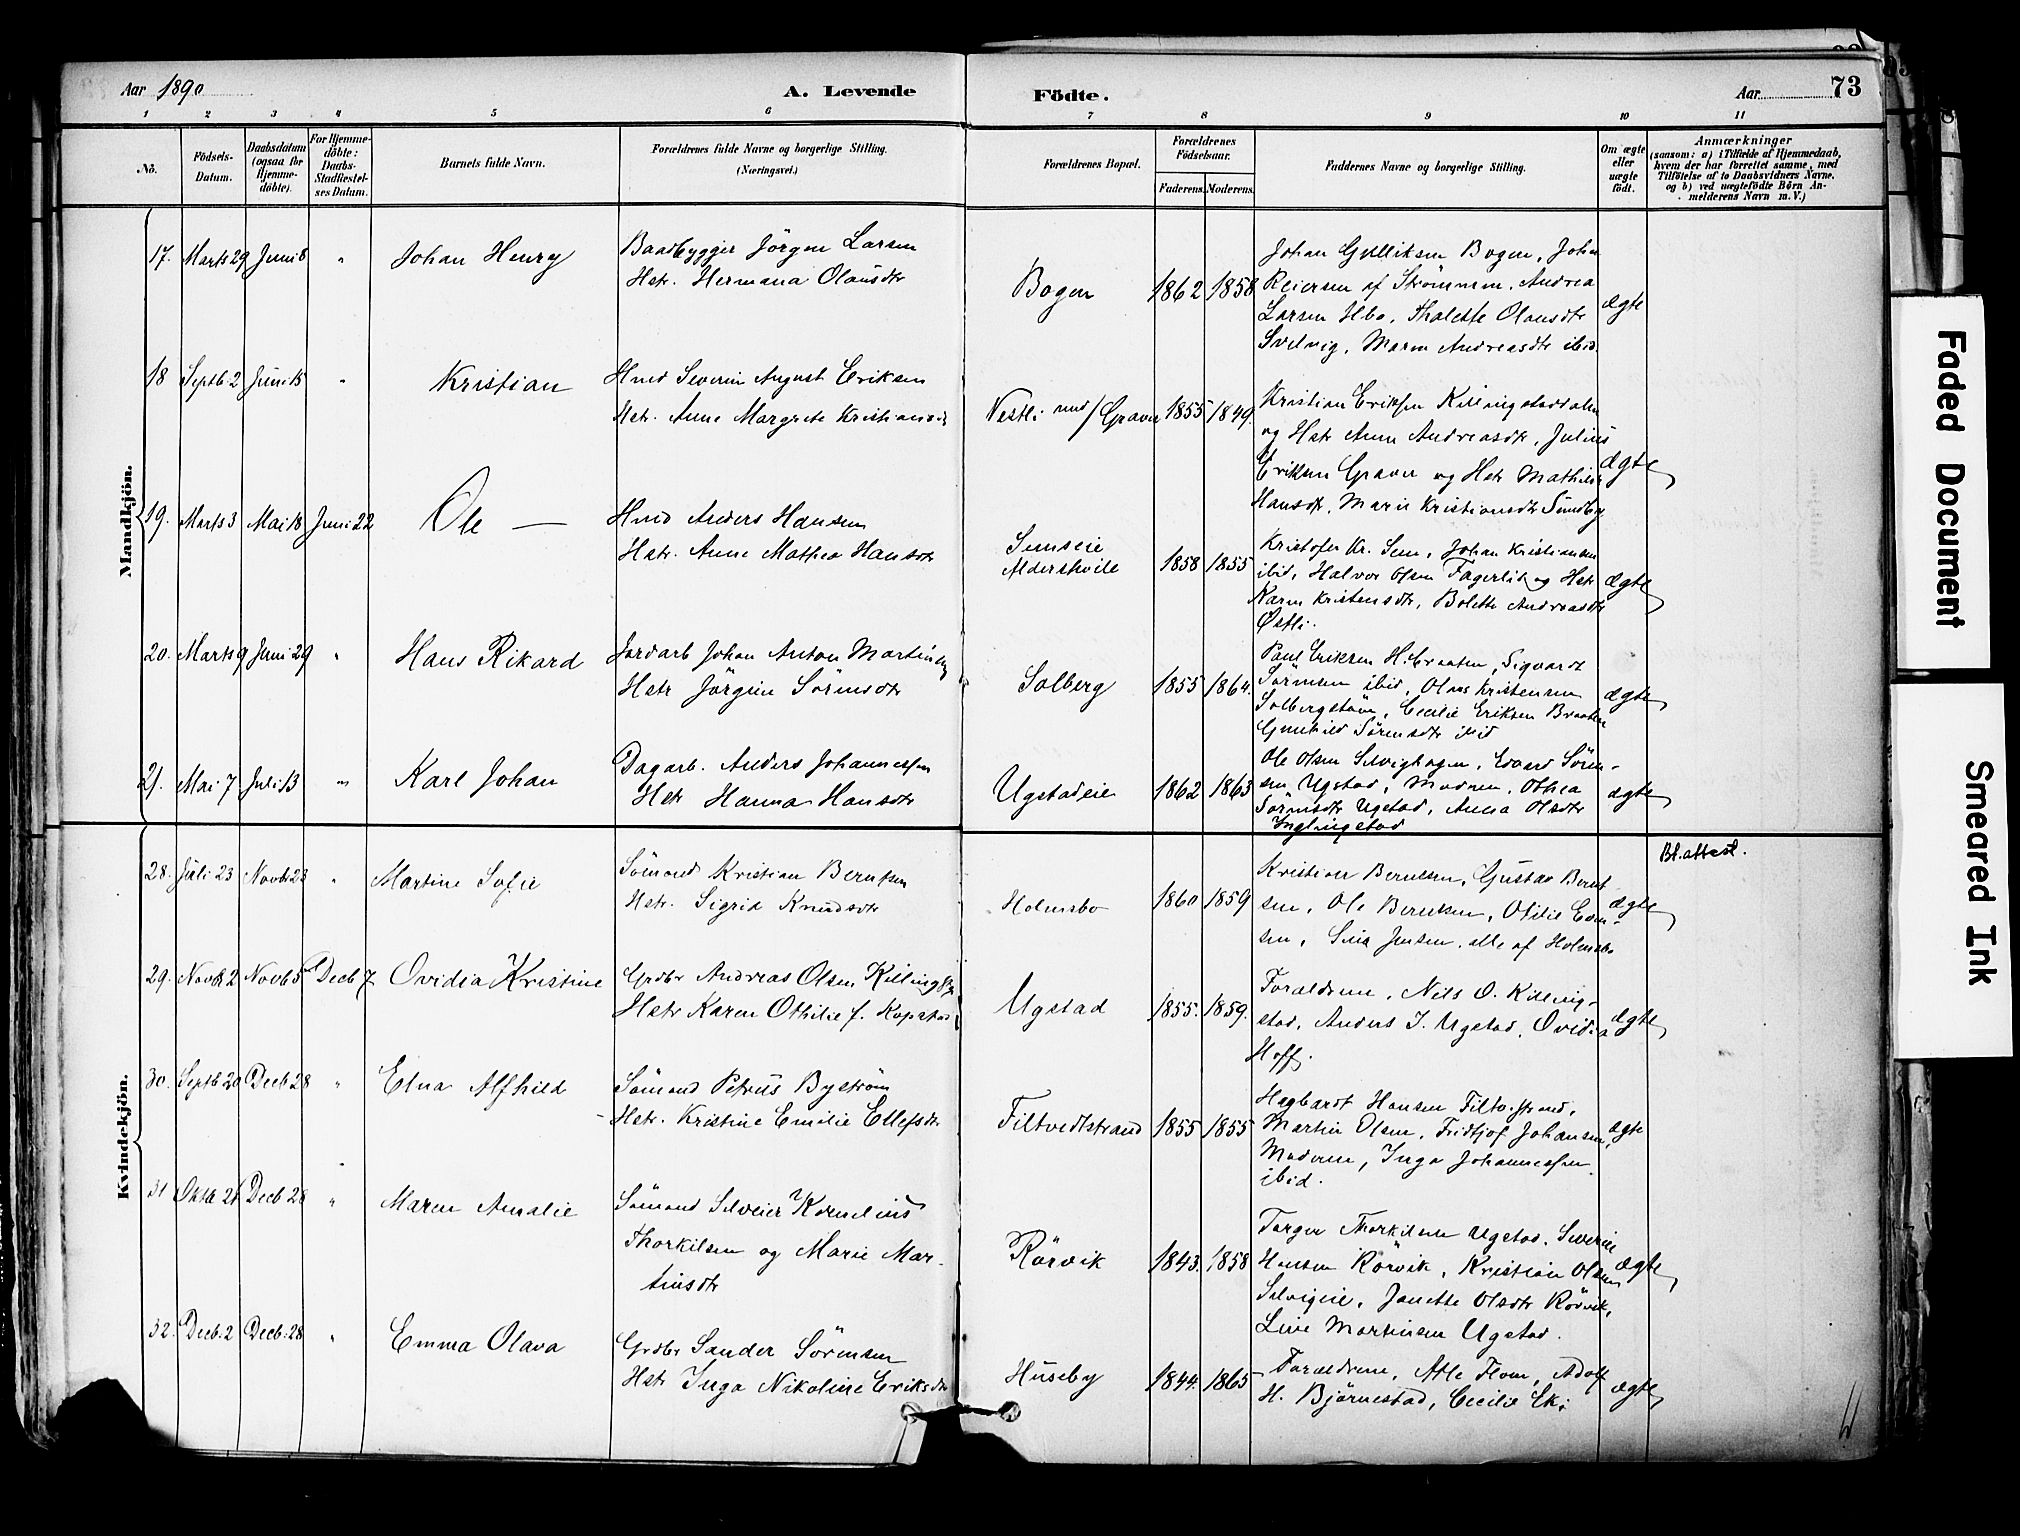 Aar 1890
A. Levende
Födte.
Aar
73
1 2 3 4 5 6 7 8 9 10 11
No.
Födsels-
Datum.
Daabsdatum
(ogsaa for
Hjemme-
döbte).
For Hjemme-
döbte:
Daabs-
Stadfæstel-
ses Datum.
Barnets fulde Navn.
Forældrenes fulde Navne og borgerlige Stilling.
(Næringsvei.)
Forældrenes Bopæl.
Forældrenes
Födselsaar.
Faderens. Moderens.
Faddernes Navne og borgerlige Stilling.
Om ægte
eller
uægte
födt.
Anmærkninger
(saasom: a) i Tilfælde af Hjemmedaab,
hvem der har forrettet samme, med
Tilföielse af to Daabsvidners Navne,
og b) ved uægtefödte Börn An-
melderens Navn m. V.)
Mandkjön.
17. Marts 29 Juni 8 " Johan Henry
Baadbygger Jörgen Larsen
Hstr. Hermana Olausdtr
Bogen 1862 1858
Johan Gulliksen Bogen, Johan
Reiersen af Strömmen, Andrea
Larsen Ilbo, Thalette Olausdtr
Svelvig, Maren Andreasdtr ibid.
ægte
18 Septb. 2 Juni 15 " Kristian
Hmd Severin August Eriksen
Hstr. Anne Margrete Kristiansdtr
Vestli und/Graver 1855 1849.
Kristian Eriksen Killingstaddalen
og Hstr Anne Andreasdtr, Julius
Eriksen Graver og Hstr Mathilde
Hansdtr, Marie Kristiansdtr Sundby
ægte
19. Marts 3 Mai 18 Juni 22 Ole —
Hmd Anders Hansen
Hstr. Anne Mathea Hansdtr
Semseie
Alderskvile 1858 1855
Kristofer Kr. Sem, Johan Kristiansen
ibid, Halvor Olsen Fagerli og Hstr
Karen Kristensdtr, Bolette Andreasdtr
Østli.
ægte
20. Marts 9 Juni 29 " Hans Rikard
Jordarb Johan Anton Martinsen
Hstr Jörgine Sörensdtr
Solberg 1855 1864.
Paul Eriksen H. Braaten, Sigvardt
Sörensen ibid, Olaus Kristensen
Solbergstöen, Cecilie Eriksen Braaten
Gunhild Sörensdtr ibid
ægte
21. Mai 7 Juli 13 " Karl Johan
Dagarb. Anders Johannessen
Hstr Hanna Hansdtr
Ugstadeie 1862 1863
Ole Olsen Selvighagen, Edvard Sören-
sen Ugstad, Moderen, Othea
Sörensdtr Ugstad, Anna Olsdtr
Inglingstad
ægte
Kvindekjön.
28. Juli 23 Novb 23 " Martine Sofie
Sömand Kristian Berntsen
Hstr. Sigrid Knudsdtr
Holmsbo 1860 1859
Kristian Berntsen, Gustav Bernt-
sen, Ole Berntsen, Otilie Even-
sen, Sina Jensen, alle af Holmsbo
ægte
Bl. attest.
29. Novb 2 Novb 5 Decb 7 Ovidia Kristine
Grdbr Andreas Olsen Killingstad
Hstr Karen Othilie f. Kopstad
Ugstad 1855. 1859.
Forældrene, Nils O. Killing-
stad, Anders J. Ugstad, Ovidia
Hoff.
ægte
30. Septb 20 Decb 28 " Edna Alfhild
Sömand Petrus Byström
Hstr. Kristine Emilie Ellefsdtr
Filtvedtstrand 1855 1855
Hagbardt Hansen Filtv.strand,
Martin Olsen, Fridtjof Johansen,
Moderen, Inga Johannessen
ibid.
ægte
31 Oktb 21 Decb 28 " Maren Amalie
Sömand Selveier Kornelius
Thorkilsen og Marie Mar-
tinsdtr
Rörvik 1843. 1858
Torger Thorkilsen Ugstad, Severin
Hansen Rörvik, Kristian Olsen
Selvigeie, Janette Olsdtr Rörvik,
Line Martinsen Ugstad.
ægte
32. Decb. 2 Decb. 28 " Emma Olava
Grdbr Sander Sörensen
Hstr Inga Nikoline Eriksdtr
Huseby 1844. 1865
Forældrene, Atle Flom, Adolf
H. Björnestad, Cecilie Ek.
ægte
Faded Document
Smeared Ink